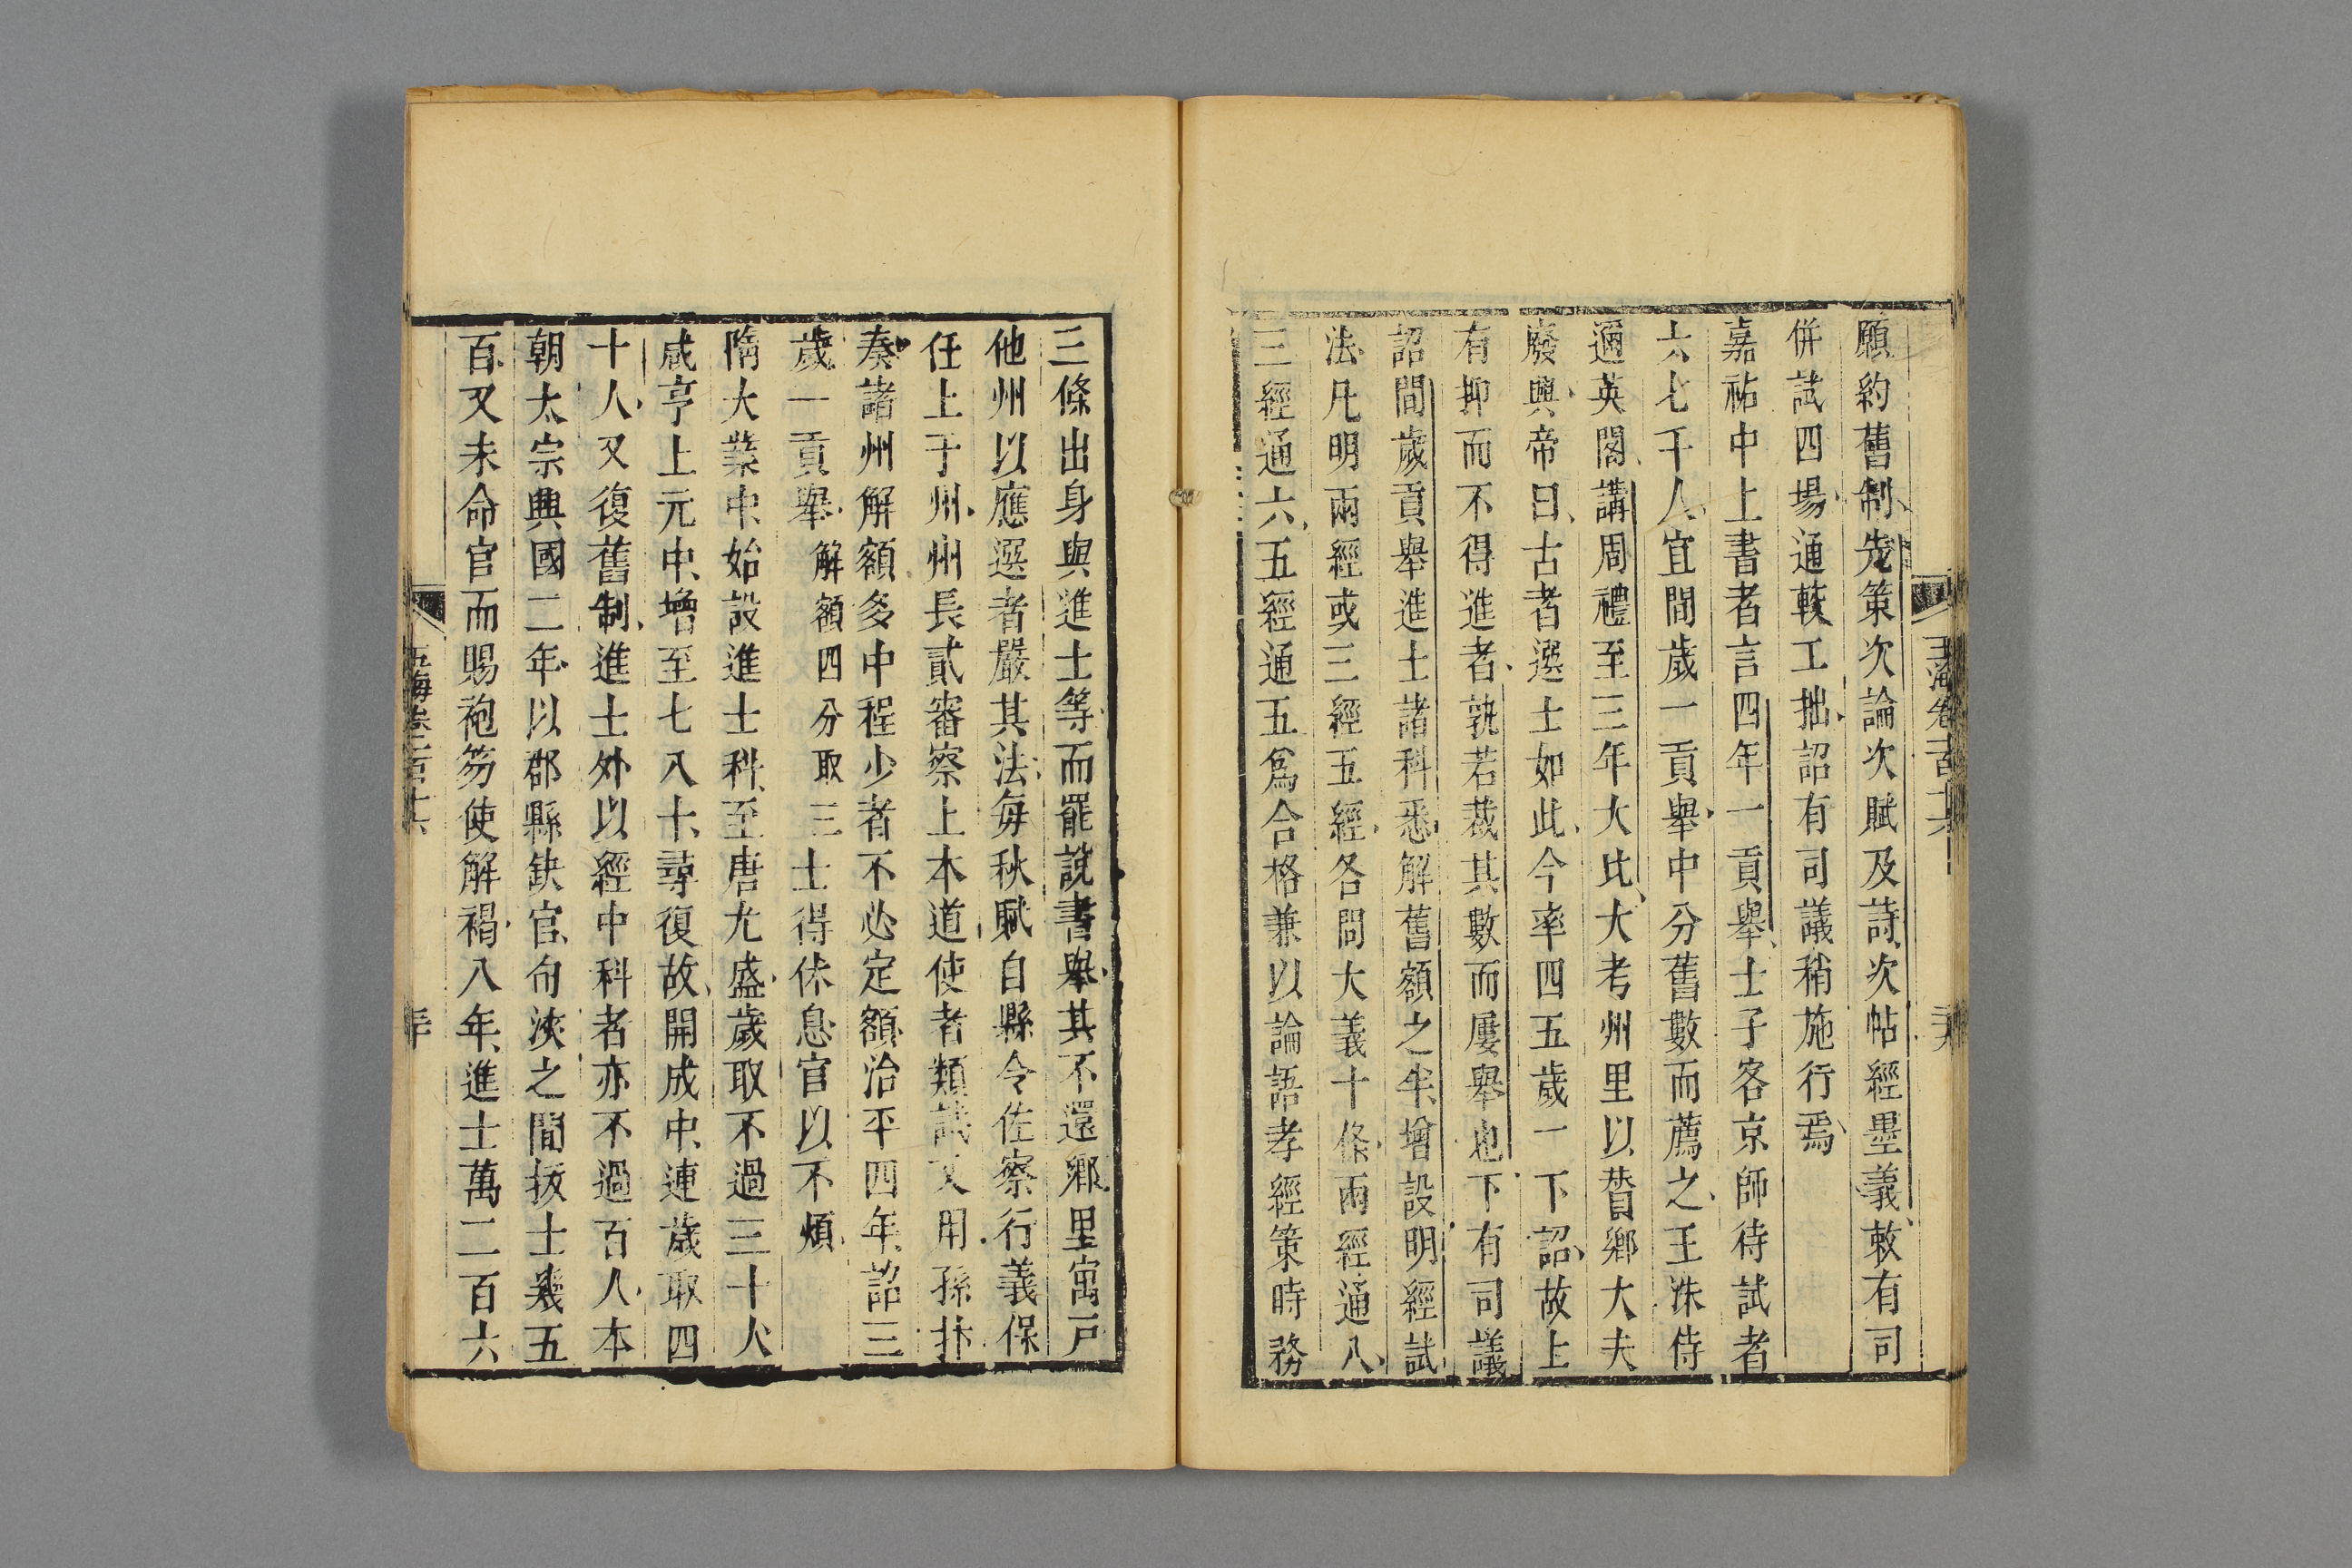 願約舊制先策次論次賦及詩次帖經墨義敕有司
併試四場通較工拙詔有司議稍施行焉
嘉祐中上書者言四年一貢舉士子客京師待試者
六七千人宜間歲一貢舉中分舊數而薦之王洙侍
邇英閣講周禮至三年大比大考州里以贊鄉大夫
廢興帝曰古者選士如此今率四五歲一下詔故士
有抑而不得進者孰若裁其數而屢舉也下有司議
詔間歲貢舉進士諸科悉解舊額之半增設明經試
法凡明兩經或三經五經各問大義十條兩經通八
三經通六五經通五爲合格兼以論語孝經策時務
三條出身與進士等而罷說書舉其不還鄉里寓戸
他州以應選者嚴其法每秋賦自縣令佐察行義保
任上于州州長貳審察上本道使者類試又用孫抃
奏諸州解額多中程少者不必定額治平四年詔三
歲一貢舉解額四分取三士得休息官以不煩
隋大業中始設進士科至唐尤盛歲取不過三十人
咸亨上元中增至七八十尋復故開成中連歲取四
十人又復舊制進士外以經中科者亦不過百人本
朝太宗興國二年以郡縣缺官旬浹之間拔士幾五
百又未命官而賜袍笏使解褐八年進士萬二百六